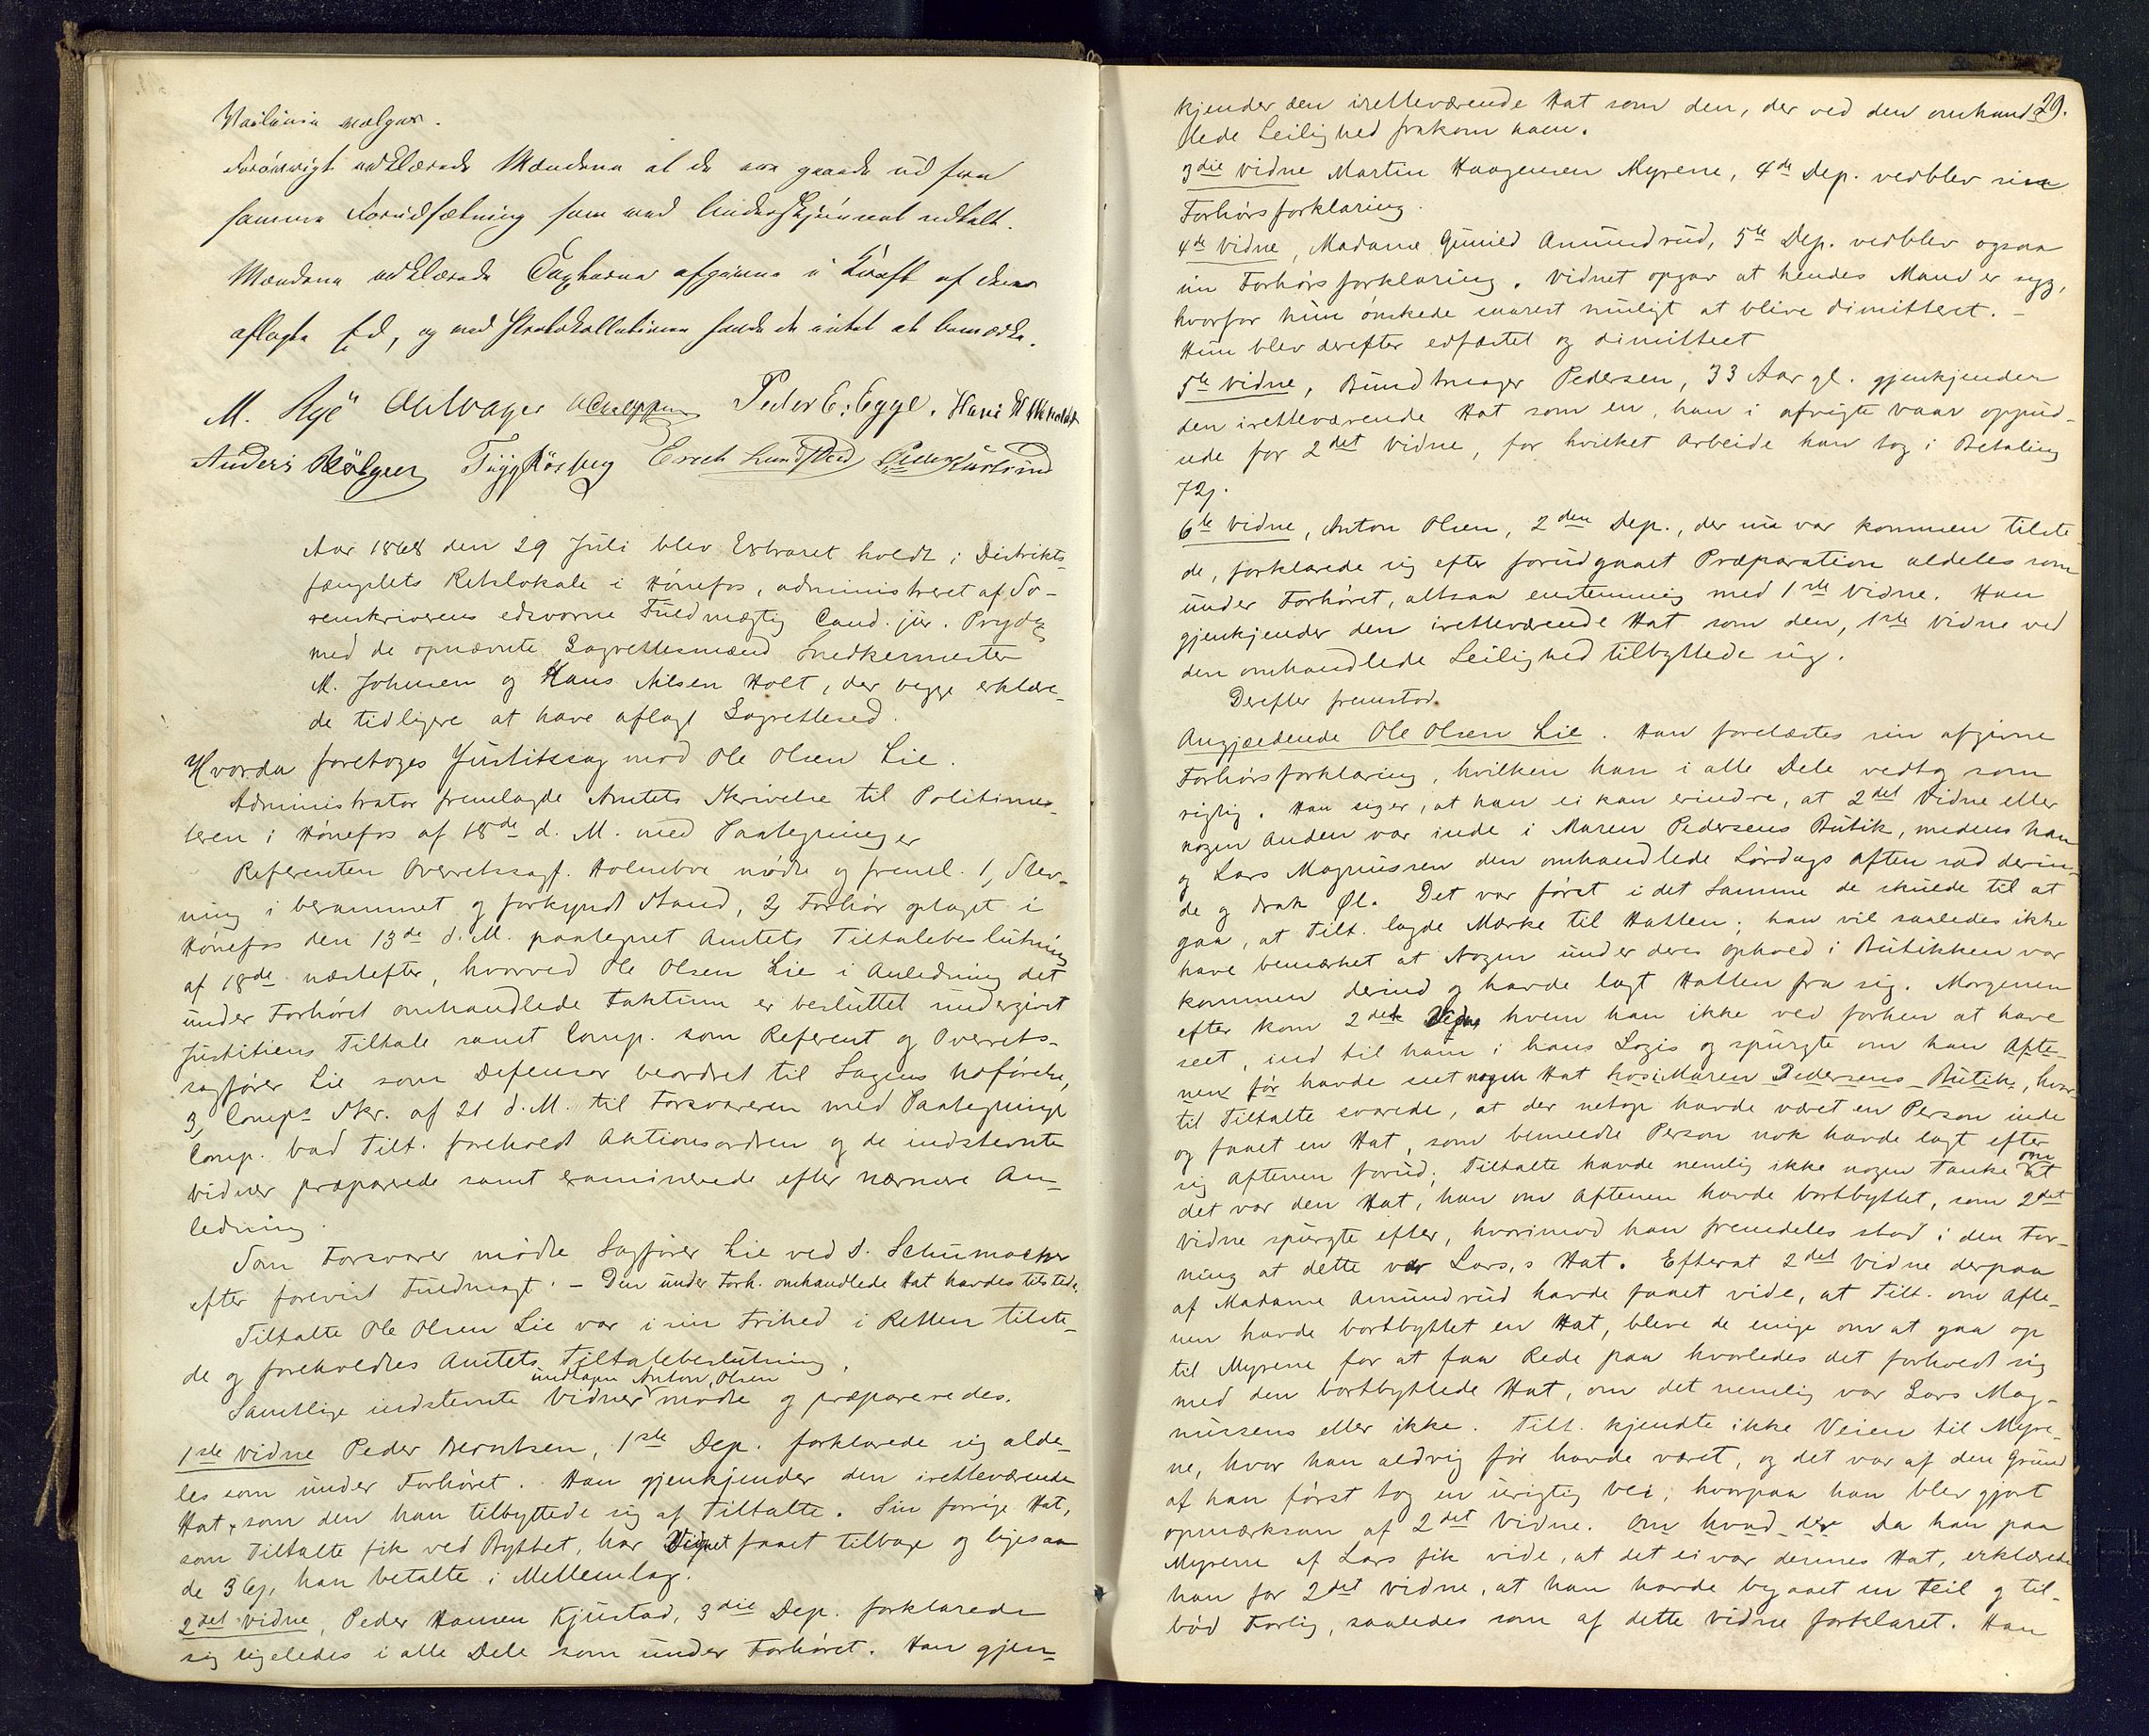 Veilinie vælges.
Forøvrigt erklærede Mændene at de var gaaede ud fra
samme Forudsætning som ved Underskjønnet udtalt.
Mændene erklærede Taxterne afgivne i Kraft af deres
aflagte Ed, og ved Protokollationen havde de intet at bemærke.
M. Rye Peder E: Egge. Hans
Anders Bølgen Erich Lundsted
Aar 1868 den 29 Juli blev Extraret holdt i Distrikts-
fængslets Retslokale i Hønefos, administreret af So-
renskriverens edsvorne Fuldmægtig Cand. jur. Prydz
med de opnævnte Lagrettesmænd Snedkermester
M. Johnsen og Hans Nilsen Holt, der begge erklære-
de tidligere at have aflagt Lagrettesed.
Hvorda foretoges Justitssag mod Ole Olsen Lie.
Administrator fremlagde Amtets Skrivelse til Politimes-
teren i Hønefos af 18de d. M. med Paategninger
Referenten Overretssagf. Holmboe mødte og freml. 1, Stev-
ning i berammet og forkyndt Stand, 2, Forhør optaget i
Hønefos den 13de d. M. paategnet Amtets Tiltalebeslutning
af 18de næstefter, hvorved Ole Olsen Lie i Anledning det
under Forhøret omhandlede Faktum er besluttet undergivet
Justitiens Tiltale samt Comp. som Referent og Overrets-
sagfører Lie som Defensor beordret til Sagens Udførelse,
3, Comps Skr. af 21 d. M. til Forsvareren med Paategning
Comp. bad Tilt. foreholdt Aktionsordren og de indstevnte
Vidner præparerede samt examinerede efter nærmere An-
ledning.
Som Forsvarer mødte Sagfører Lie ved S. Schumacher
efter forevist Fuldmagt. – Den under Forh. omhandlede Hat havdes tilstede.
Tiltalte Ole Olsen Lie var i sin Frihed i Retten tilste-
de og foreholdtes Amtets Tiltalebeslutning.
undtagen Anton Olsen
Samtlige indstevnte Vidner mødte og præpareredes.
1ste Vidne Peder Berntsen, 1ste Dep. forklarede sig alde-
les som under Forhøret. Han gjenkjender den iretteværende
Hat, som den han tilbyttede sig af Tiltalte. Sin forrige Hat,
som Tiltalte fik ved Byttet, har Vidnet faaet tilbage og ligesaa
de 36 s, han betalte i Mellemlag.
2det Vidne, Peder Hansen Kjustad, 3die Dep. forklarede
sig ligeledes i alle Dele som under Forhøret. Han gjen-
29.
kjender den iretteværende Hat som den, der ved den omhand-
lede Leilighed frakom ham.
3die Vidne Martin Haagensen Myrene, 4de Dep. vedblev sin
Forhørsforklaring.
4de Vidne, Madame Gunild Amundrud, 5te Dep. vedblev ogsaa
sin Forhørsforklaring. Vidnet opgav at hendes Mand er syg,
hvorfor hun ønskede snarest muligt at blive dimitteret. –
Hun blev derefter edfæstet og dimitteret
5te Vidne, Bundtmager Pedersen, 33 Aar gl. gjenkjender
den iretteværende Hat som en, han i afvigte Vaar oppud-
sede for 2det Vidne, for hvilket Arbeide han tog i Betaling
72 s.
6te Vidne, Anton Olsen, 2den Dep., der nu var kommen tilste-
de, forklarede sig efter forudgaaet Præparation aldeles som
under Forhøret, altsaa enstemmig med 1ste Vidne. Han
gjenkjender den iretteværende Hat som den, 1ste Vidne ved
den omhandlede Leilighed tilbyttede sig.
Derefter fremstod
Angjældende Ole Olsen Lie. Han forelæstes sin afgivne
Forhørsforklaring, hvilken han i alle Dele vedtog som
rigtig. Han siger, at han ei kan erindre, at 2det Vidne eller
nogen Anden var inde i Maren Pedersens Butik, medens han
og Lars Magnussen den omhandlede Lørdags aften sad derin-
de og drak Øl. Det var først i det Samme de skulde til at
gaa, at Tilt. lagde Mærke til Hatten; han vil saaledes ikke
have bemærket at Nogen under deres Ophold i Butikken var
kommen derind og havde lagt Hatten fra sig. Morgenen
efter kom 2det Vidne, hvem han ikke ved forhen at have
seet, ind til ham i hans Logis og spurgte om han Afte-
nen før havde seet nogen Hat hos i Maren Pedersens Butik, hvor-
til Tiltalte svarede, at der netop havde været en Person inde
og faaet en Hat, som bemeldte Person nok havde lagt efter
sig Aftenen forud; Tiltalte havde nemlig ikke nogen Tanke om at
det var den Hat, han om Aftenen havde bortbyttet, som 2det
Vidne spurgte efter, hvorimod han fremdeles stod i den For-
ning at dette var Lars,s Hat. Efterat 2det Vidne derpaa
af Madame Amundrud havde faaet vide, at Tilt. om Afte-
nen havde bortbyttet en Hat, bleve de enige om at gaa op
til Myrene for at faa Rede paa hvorledes det forholdt sig
med den bortbyttede Hat, om det nemlig var Lars Mag-
nussens eller ikke. Tilt. kjendte ikke Veien til Myre-
ne, hvor han aldrig før havde været, og det var af den Grund
af han først tog en urigtig Vei, hvorpaa han blev gjort
opmærksom af 2det Vidne. Om hvad der Da han paa
Myrene af Lars fik vide, at det ei var dennes Hat, erklærede
han for 2det Vidne, at han havde begaaet en Feil og til-
bød Forlig, saaledes som af dette Vidne forklaret. Han